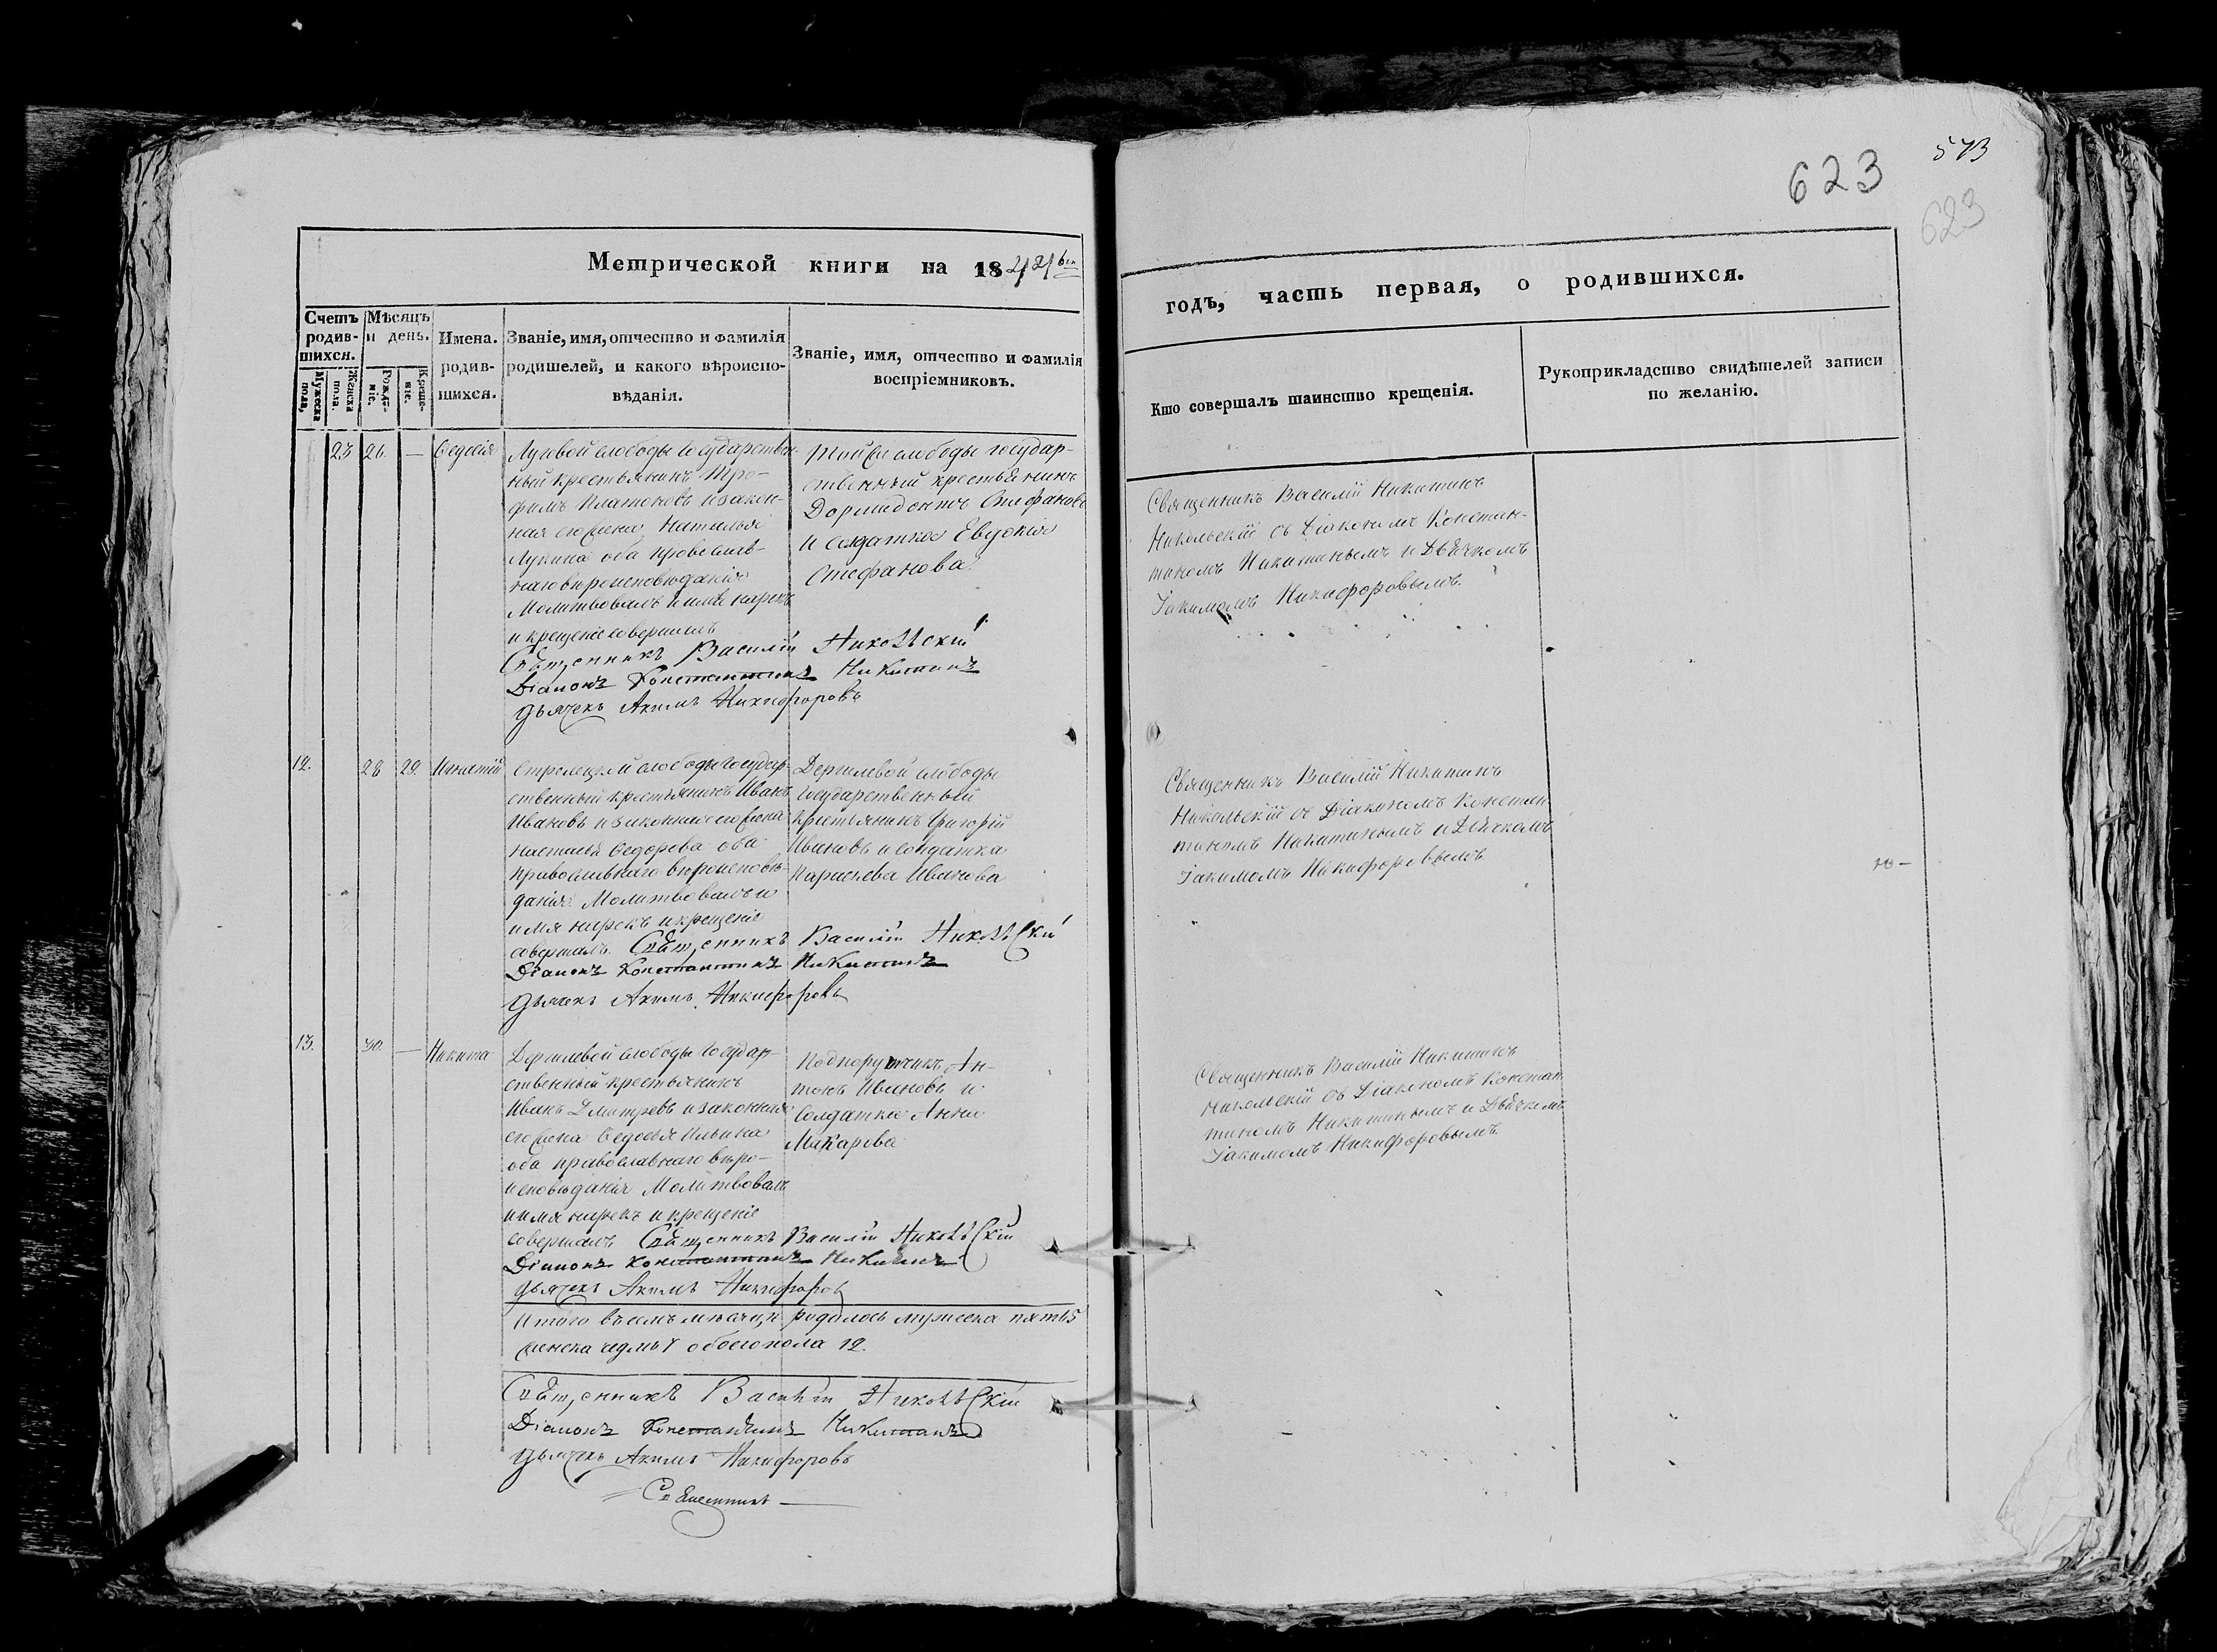 623
573
623
Метрической книги на 1844й
годъ, часть первая, о родившихся.
Счетъ родив-шихся.
Мужеска пола,
Женска пола.
Мѣсяцъ и день.
Рожде-ніе.
Креще-ніе.
Имена. родив-шихся.
Званіе, имя, отчество и фамилія
родителей, и какого вѣроиспо-
вѣданія.
Званіе, имя, отчество и фамилія
воспріемниковъ.
Кто совершалъ таинство крещенія.
Рукоприкладство свидѣтелей записи
по желанію.
23 26 — Федосія
Луговой слободы Государствен-
ный крестьянинъ Тро-
фимъ Платоновъ и закон-
ная его жена Наталья
Лукина оба православ-
наго вѣроисповѣданія
Молитвовалъ и имя нарекъ
и крещеніе совершилъ
Той же слободы государ-
ственный крестьянинъ
Дормидонтъ Стефановъ
и солдатка Евдокія
Стефанова
Священникъ Василій Никитинъ
Никольскій съ Діакономъ Констан-
тиномъ Никитинымъ и Дьячкомъ
Іакимомъ Никифоровымъ.
Священникъ Василій Никольскій
Діаконъ Константинъ Никитинъ
Дьячекъ Акимъ Никифоровъ
12. 28 29. Игнатій
Стрелецкой слободы Государ-
ственный крестьянинъ Иванъ
Ивановъ и законная его жена
Настасья Федорова оба
православнаго вѣроисповѣ-
данія Молитвовалъ и
имя нарекъ и крещеніе
совершалъ Священникъ Василій Никольскій
Діаконъ Константинъ Никитинъ
Дьячекъ Акимъ Никифоровъ
слободы
Государственный
крестьянинъ Григорій
Ивановъ и солдатка
Параскева Иванова
Священникъ Василій Никитинъ
Никольскій съ Діакономъ Констан
тиномъ Никитинымъ и Дьячкомъ
Іакимомъ Никифоровымъ
13. 30. — Никита
слободы Государ-
ственный крестьянинъ
Иванъ Дмитревъ и законная
его жена Федосья Ильина
оба православнаго вѣро-
исповѣданія Молитвовалъ
и имя нарекъ и крещеніе
совершалъ Священникъ Василій Никольскій
Діаконъ Константинъ Никитинъ
Дьячекъ Акимъ Никифоровъ
Подпорутчикъ Ан-
тонъ Ивановъ и
Солдатка Анна
Макарова
Священникъ Василій Никитинъ
Никольскій съ Діакономъ Констан
тиномъ Никитинымъ и Дьячкомъ
Іакимомъ Никифоровымъ.
Итого въ семъ мѣсяцѣ родилось мужеска пять 5
женска обоего пола 12.
Священникъ Василій Никольскій
Діаконъ Константинъ Никитинъ
Дьячекъ Акимъ Никифоровъ